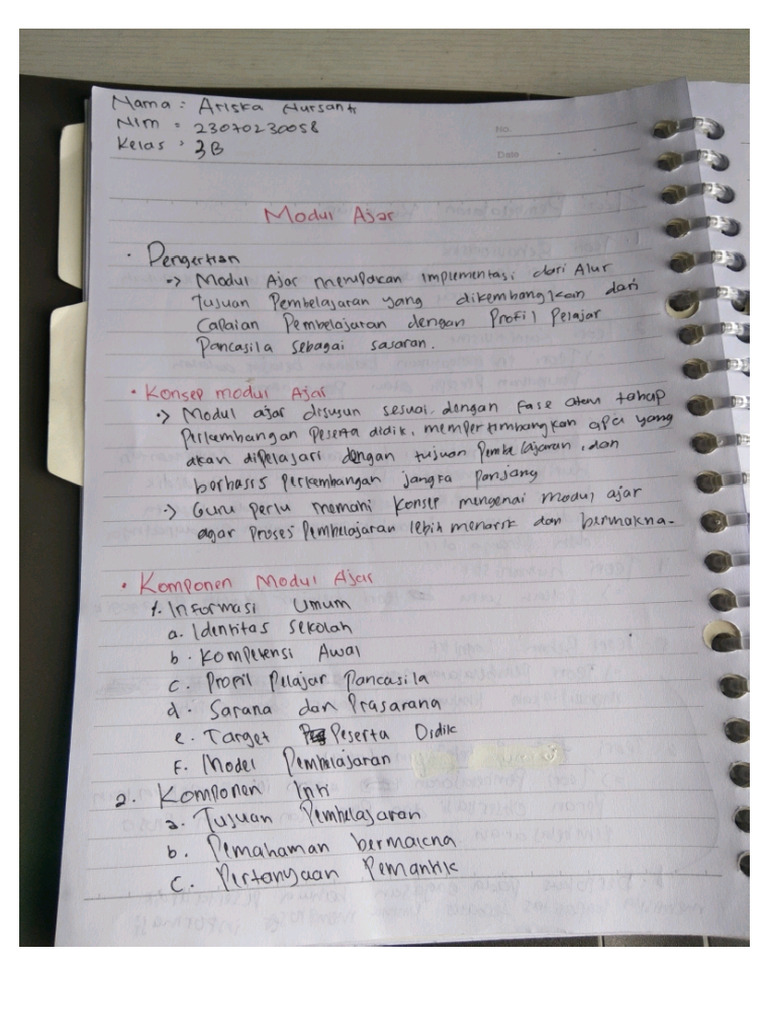 Nama : Ariska Nursanti
NIM : 23070230058
Kelas : 3B
No.
Date
Modul Ajar
• Pengertian
-> Modul Ajar merupakan implementasi dari Alur
Tujuan Pembelajaran yang dikembangkan dari
Capaian Pembelajaran dengan Profil Pelajar
Pancasila sebagai sasaran.
• Konsep modul Ajar
-> Modul ajar disusun sesuai dengan fase atau tahap
Perkembangan Peserta didik, mempertimbangkan apa yang
akan dipelajari dengan tujuan Pembelajaran, dan
berbasis Perkembangan jangka panjang
-> Guru perlu memahi konsep mengenai modul ajar
agar proses Pembelajaran lebih menarik dan bermakna.
• Komponen Modul Ajar
1. Informasi Umum
a. Identitas sekolah
b. Kompetensi Awal
c. Profil Pelajar Pancasila
d. Sarana dan Prasarana
e. Target Peserta Didik
f. Model Pembelajaran
2. Komponen Inti
a. Tujuan Pembelajaran
b. Pemahaman bermakna
c. Pertanyaan Pemantik